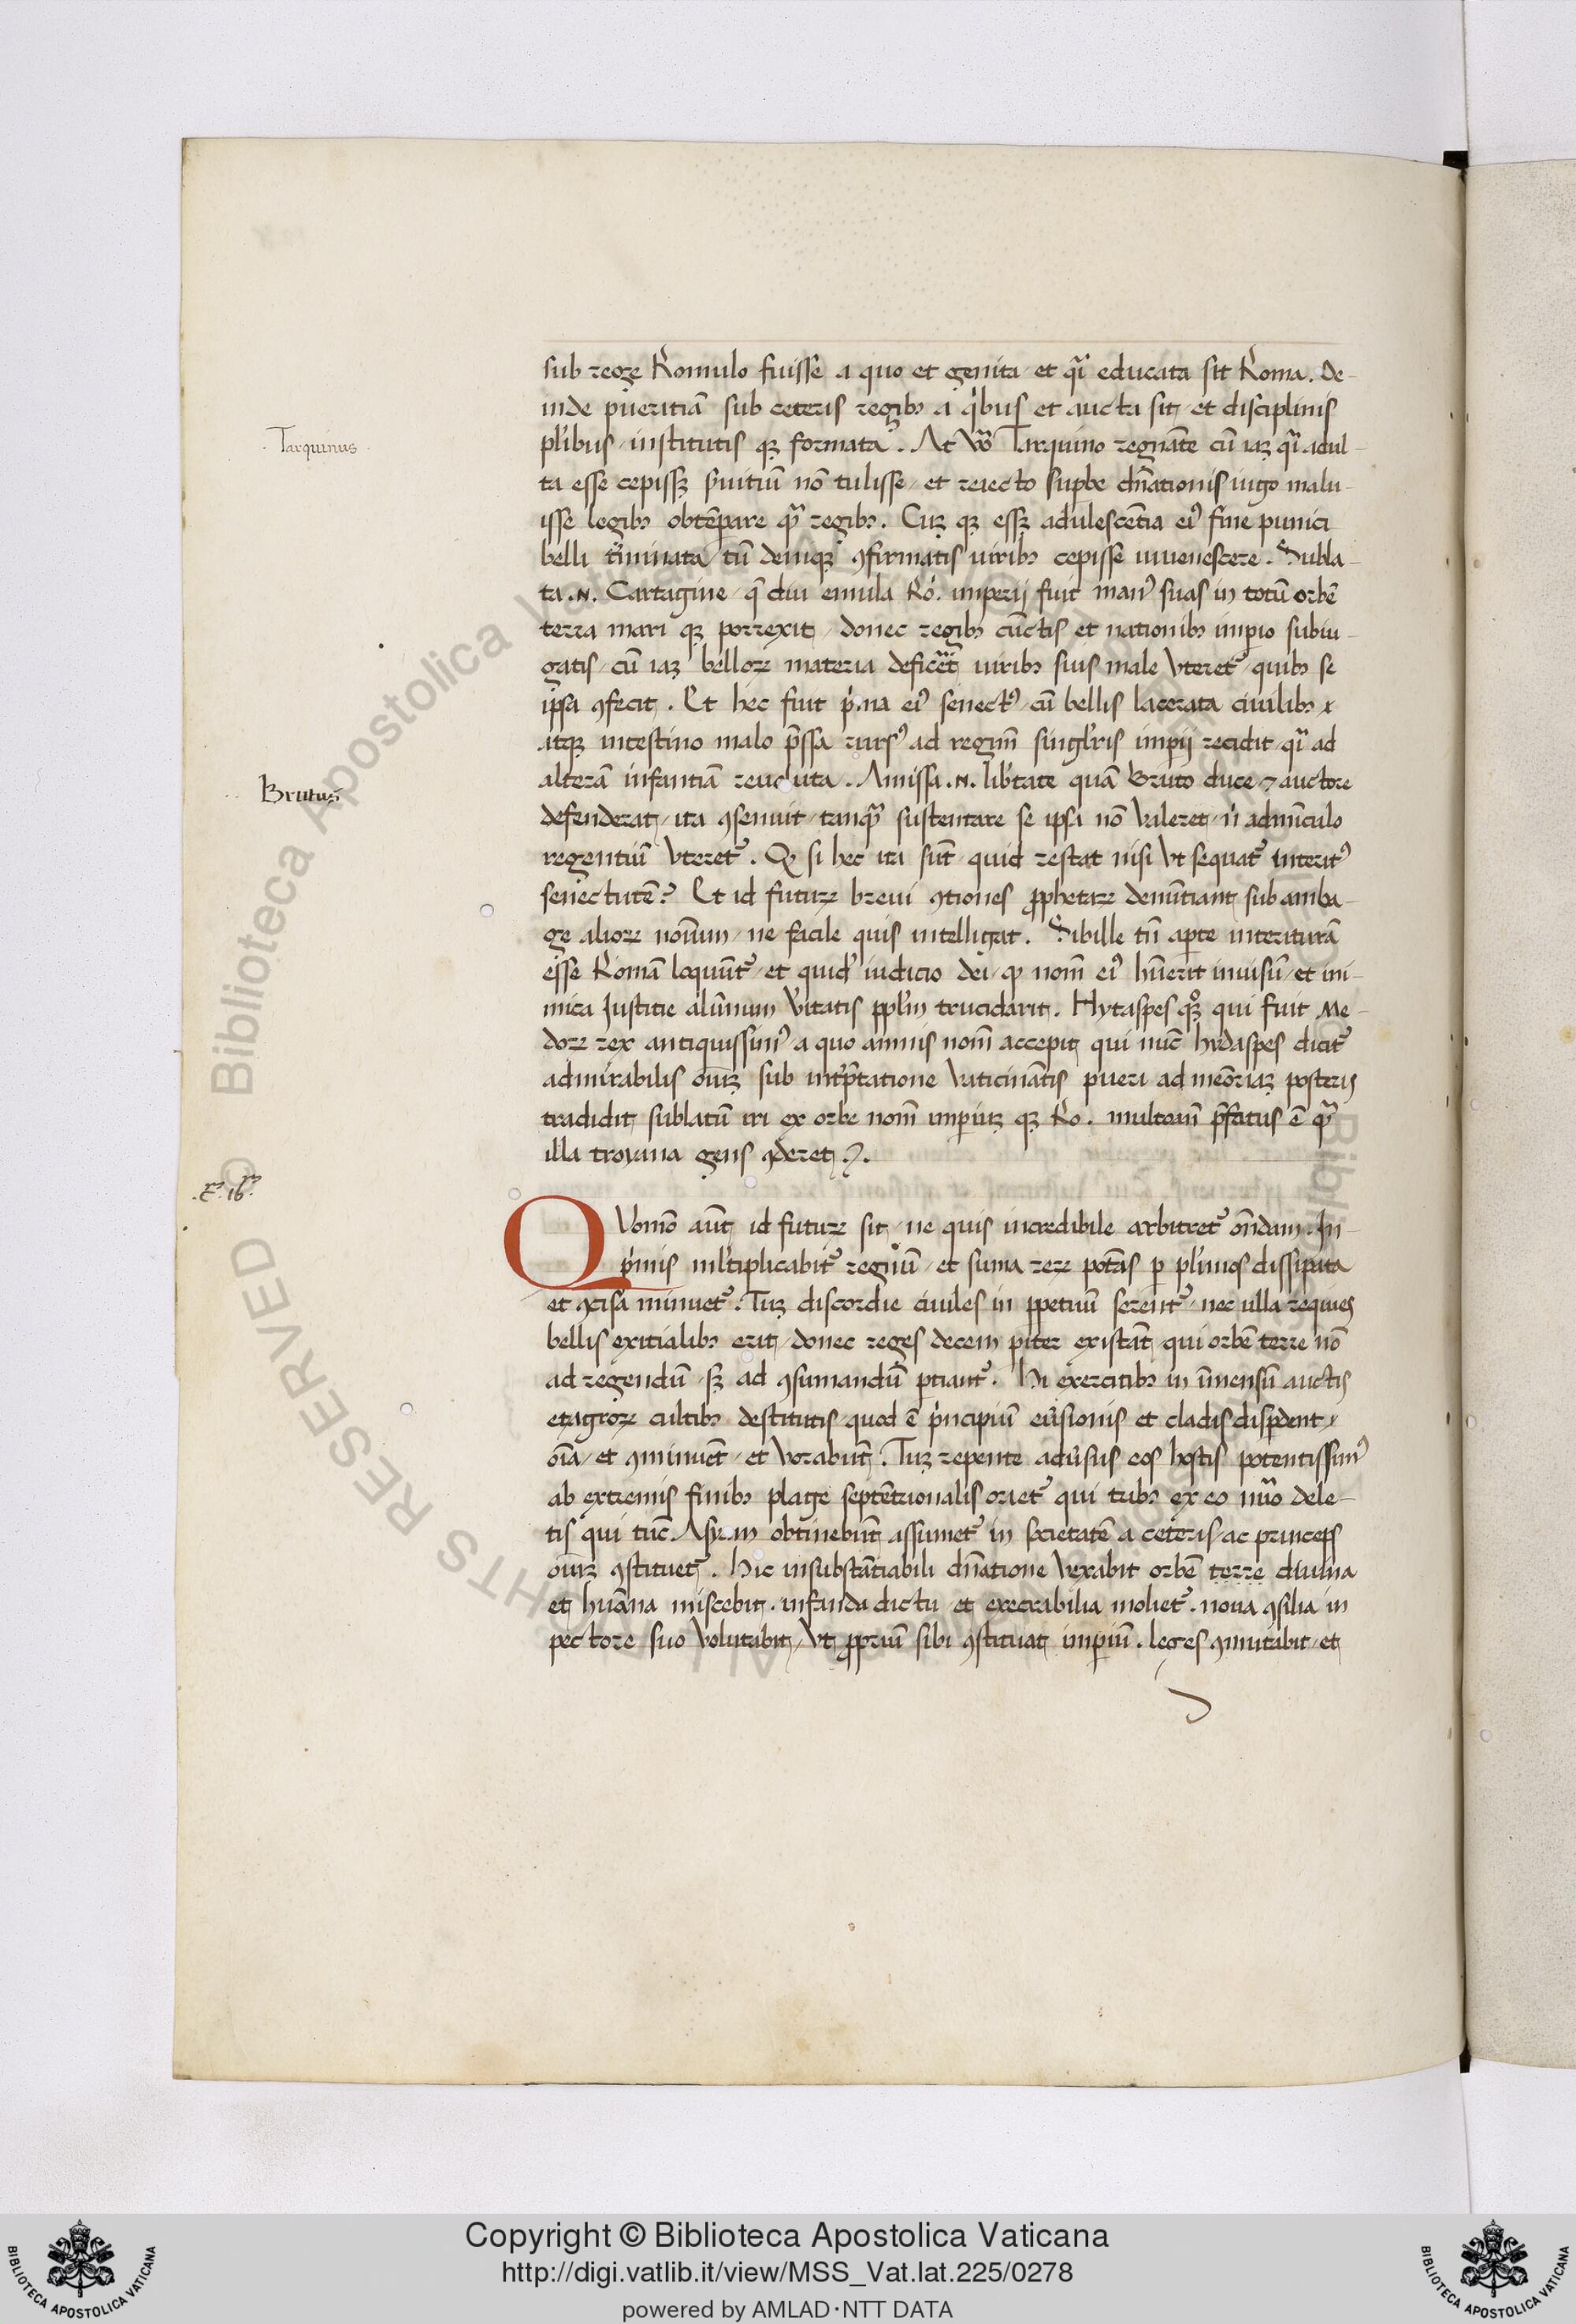 sub rege Romulo fuisse a quo et genita et q̃i educata sit Roma. De-
inde pueritiã sub ceteris regibꝫ a q̇bus et aucta sit et disciplinis
pl̃ibus institutis qꝫ formata. At ṽo Tarquino regnãte cũ iaꝫ q̃i adul-
Tarquinus
ta esse cepissꝫ s̃uitiũ nõ tulisse et reiecto supbe dñationis iugo malu-
isse legibꝫ obtẽpare q̃ regibꝫ. Cuꝫ qꝫ essꝫ adulescẽtia eiꝰ fine punici
belli t̃minata tũ deniqꝫ ꝯfirmatis uiribꝫ cepisse iuuenescere. Subla-
ta .N. Cartagine q̃ diu emula Ro. imperij fuit manꝰ suas in totũ orbẽ
terra mari qꝫ porrexit donec regibꝫ cũctis et nationibꝫ imꝑio subiu-
gatis cũ iaꝫ belloꝝ materia defic̃et uiribꝫ suis male vteret᷑ quibꝫ se
ipsa ꝯfecit. Et hec fuit p̃ma eiꝰ senectꝰ cũ bellis lacerata ciuilibꝫ
atqꝫ intestino malo p̃ssa rursꝰ ad regim̃ singl̃ris imꝑij recidit q̃i ad
alterã infantiã reuoluta. Amissa .N. lib̃tate quã Bruto duce ⁊ auctore
Brutus
defenderat ita ꝯsenuit tanq̃ sustentare se ipsa nõ valeret ñ adm̃iculo
regentiũ vteret᷑. Ꝙ si hec ita sũt quid restat nisi vt sequat᷑ interitꝰ
senectutẽ? Et id futuꝝ breui ꝯtiones ꝓphetaꝝ denũtiant sub amba-
ge alioꝝ noĩum ne facile quis intelligat. Sibille tñ aꝑte interiturã
esse Romã loquũt᷑ et quidẽ iudicio dei ꝙ nom̃ eiꝰ hũerit inuisũ et ini-
mica Iustitie alũnum ṽitatis ppl̃m trucidarit. Hytaspes qꝫ qui fuit Me-
doꝝ rex antiquissimꝰ a quo amnis nom̃ accepit qui nũc hydaspes dicit᷑
admirabilis om̃iꝫ sub int̃p̃tatione vaticinãtis pueri ad meõriaꝫ posteris
tradidit sublatũ iri ex orbe nom̃ imꝑiuꝫ qꝫ Ro. multoañ p̃fatus ẽ q̃
illa troyana gens ꝯderet.
.E. ib.
Quomõ aũt id futuꝝ sit ne quis incredibile arbitret᷑ oñdam. In
p̃mis ml̃tiplicabit᷑ regnũ et sum̃a reꝝ potãs ꝑ pl̃imos dissipata
et ꝯcisa minuet᷑. Tuꝫ discordie ciuiles in ꝑpetuũ serent᷑ nec ulla requies
bellis exitialibꝫ erit donec reges decem pĩter existãt qui orbẽ terre nõ
ad regendũ sꝫ ad ꝯsumandũ ꝑtiant᷑. Hi exercitibꝫ in ĩmensũ auctis
et agroꝝ cultibꝫ destitutis quod ẽ p̃ncipiũ eũsionis et cladis disꝑdent
oĩa et ꝯminuẽt et vorabũt. Tuꝫ repente adũsus eos hostis potentissimꝰ
ab extremis finibꝫ plage septẽtrionalis oriet᷑ qui tribꝫ ex eo nũo dele-
tis qui tũc Asyam obtinebũt assumet᷑ in societatẽ a ceteris ac princeps
om̃iꝫ ꝯstituet᷑. Hic insubstãtiabili dñatione vexabit orbẽ terre diuina
et huãna miscebit. infanda dictu et execrabilia moliet᷑. noua ꝯsilia in
pectore suo volutabit vt ꝓpriũ sibi ꝯstituat imꝑiũ. leges ꝯmutabit et
Copyright © Biblioteca Apostolica Vaticana
http://digi.vatlib.it/view/MSS_Vat.lat.225/0278
powered by AMLAD·NTT DATA
BIBLIOTECA APOSTOLICA VATICANA
BIBLIOTECA APOSTOLICA VATICANA